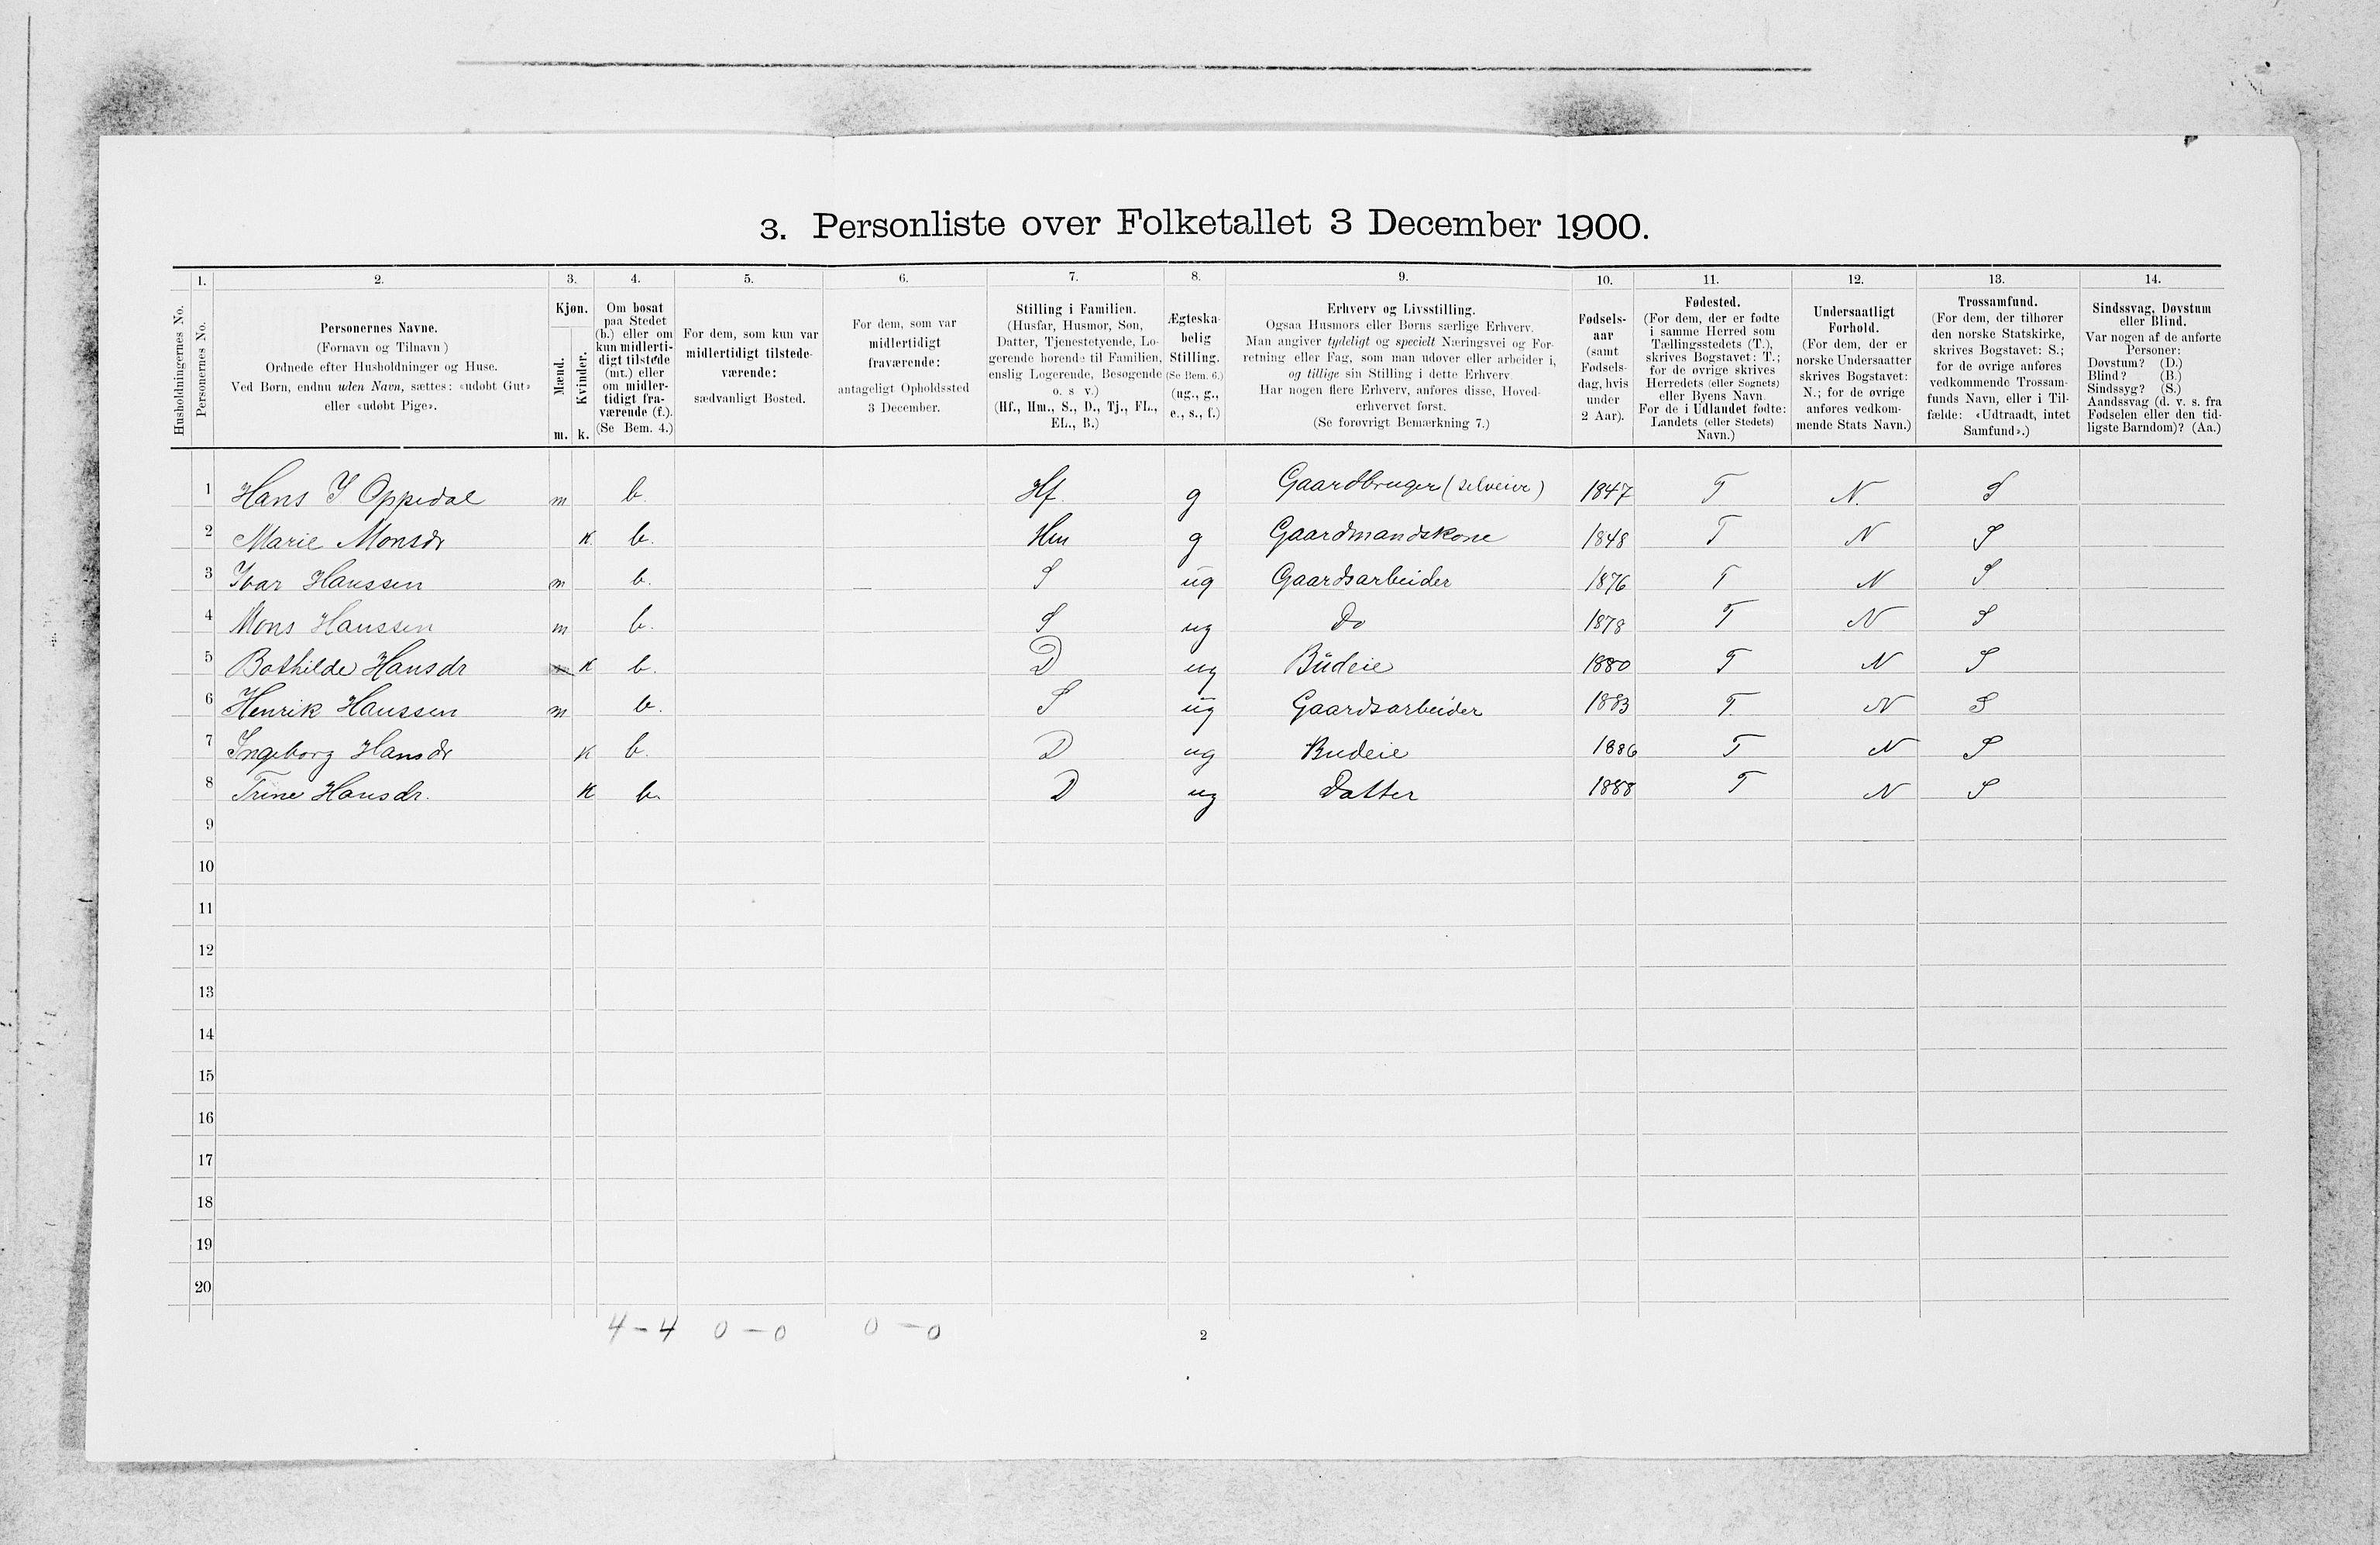 3. Personliste over Folketallet 3 December 1900.
1. 2. 3. 4. 5. 6. 7. 8. 9. 10. 11. 12. 13. 14.
Husholdningernes No.
Personernes No.
Personernes Navne.
(Fornavn og Tilnavn)
Ordnede efter Husholdninger og Huse.
Ved Børn, endnu uden Navn, sættes: «udøbt Gut»
eller «udøbt Pige».
Kjøn.
Mænd.
Kvinder.
m. k.
Om bosat
paa Stedet
(b.) eller om
kun midlerti-
digt tilstede
(mt.) eller
om midler-
tidigt fra-
værende (f.).
(Se Bem. 4.)
For dem, som kun var
midlertidigt tilstede-
værende:
sædvanligt Bosted.
For dem, som var
midlertidigt
fraværende:
antageligt Opholdssted
3 December.
Stilling i Familien.
(Husfar, Husmor, Søn,
Datter, Tjenestetyende, Lo-
gerende hørende til Familien,
enslig Logerende, Besøgende
o. s v.)
(Hf., Hm., S., D., Tj., FL.,
EL., B.)
Ægteska-
belig
Stilling.
(Se Bem. 6.)
(ug., g.,
e., s., f.)
Erhverv og Livsstilling.
Ogsaa Husmors eller Børns særlige Erhverv.
Man angiver tydeligt og specielt Næringsvei og For-
retning eller Fag, som man udøver eller arbeider i,
og tillige sin Stilling i dette Erhverv
Har nogen flere Erhverv, anføres disse, Hoved-
erhvervet først.
(Se forøvrigt Bemærkning 7.)
Fødsels-
aar
(samt
Fødsels-
dag, hvis
under
2 Aar).
Fødested.
(For dem, der er fødte
i samme Herred som
Tællingsstedets (T.),
skrives Bogstavet: T.;
for de øvrige skrives
Herredets (eller Sognets)
eller Byens Navn.
For de i Udlandet fødte:
Landets (eller Stedets)
Navn.)
Undersaatligt
Forhold.
(For dem, der er
norske Undersaatter
skrives Bogstavet:
N.; for de øvrige
anføres vedkom-
mende Stats Navn.)
Trossamfund.
(For dem, der tilhører
den norske Statskirke,
skrives Bogstavet: S.;
for de øvrige anføres
vedkommende Trossam-
funds Navn, eller i Til-
fælde: «Udtraadt, intet
Samfund».)
Sindssvag, Døvstum
eller Blind.
Var nogen af de anførte
Personer:
Døvstum? (D.)
Blind? (B.)
Sindssyg? (S.)
Aandssvag (d. v. s. fra
Fødselen eller den tid-
ligste Barndom)? (Aa.)
1 Hans I Oppedal m b. Hf. g Gaardbruger (selveier) 1847 T N. S
2 Marie Monsdr K. b. Hm g Gaardmandskone 1848 T N S
3 Ivar Hanssen m b. S ug Gaardsarbeider 1876 T N S
4 Mons Hanssen m b. S ug Do 1878 T N S
5 Bothilde Hansdr K b. D ug Budeie 1880 T N S
6 Henrik Hanssen m b. S ug Gaardsarbeider 1883 T. N S
7 Ingeborg Hansdr K b. D ug Budeie 1886 T N S
8 Trine Hansdr. K b. D ug Datter 1888 T N S
9
10
11
12
13
14
15
16
17
18
19
20
4 - 4 0 - 0 0 - 0
2